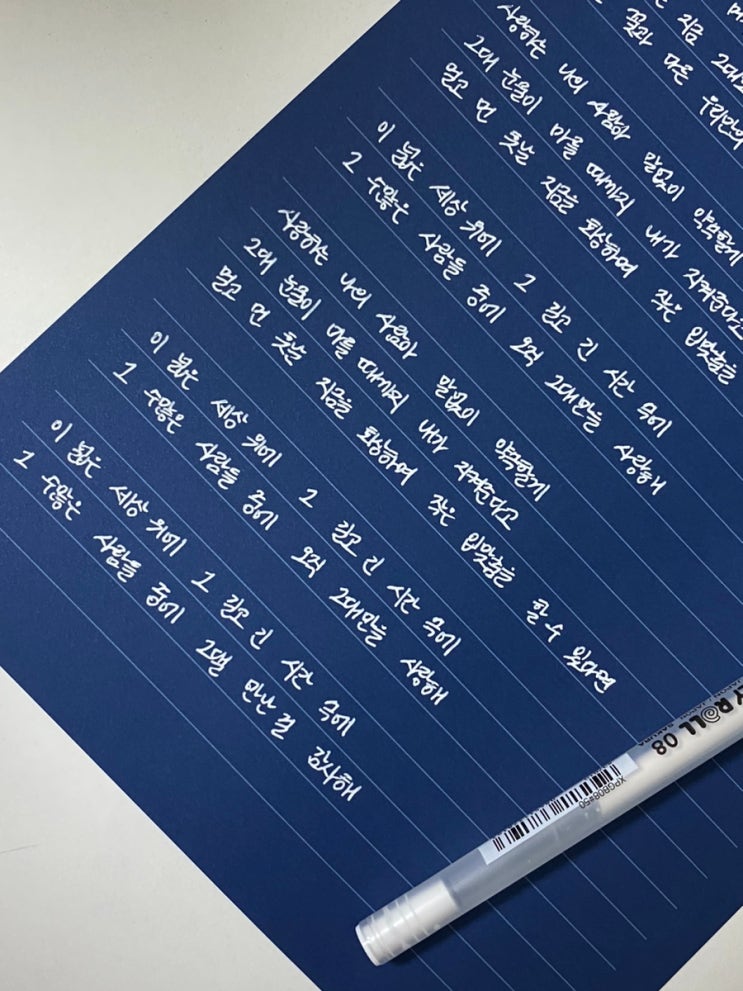 지금
우리만의
사랑하는 나의 사람아 말없이 약속할게
그대 눈물이 마를 때까지 내가 지켜준다고
멀고 먼 훗날 지금을 회상하며 작은 입맞춤을
이 넓은 세상 위에 그 길고 긴 시간 속에
그 수많은 사람들 중에 오직 그대만을 사랑해
사랑하는 나의 사람아 말없이 약속할게
그대 눈물이 마를 때까지 내가 지켜준다고
멀고 먼 훗날 지금을 회상하며 작은 입맞춤을 할 수 있다면
이 넓은 세상 위에 그 길고 긴 시간 속에
그 수많은 사람들 중에 오직 그대만을 사랑해
이 넓은 세상 위에 그 길고 긴 시간 속에
그 수많은 사람들 중에 그댈 만난 걸 감사해
Y ROLL 08
SAKURA
XPGB08#50